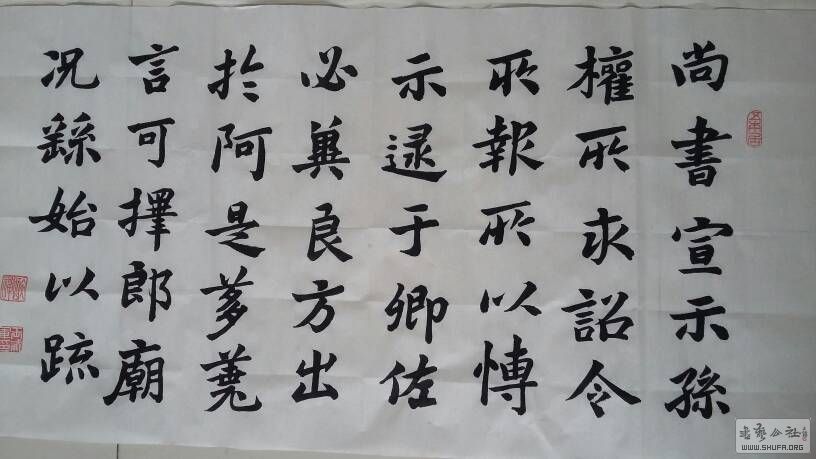 尚書宣示孫
權所求詔令
所報所以慱
示逯于卿佐
必兾良方出
於阿是蒭蕘
言可擇郎廟
况繇始以疏
WWW.SHUFA.ORG